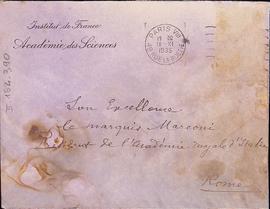 Institut de France
Académie des Sciences
PARIS VIII
1935
II 162.390
Son Excellence
le marquis Marconi
de l'Académie royale d'Italie
Rome